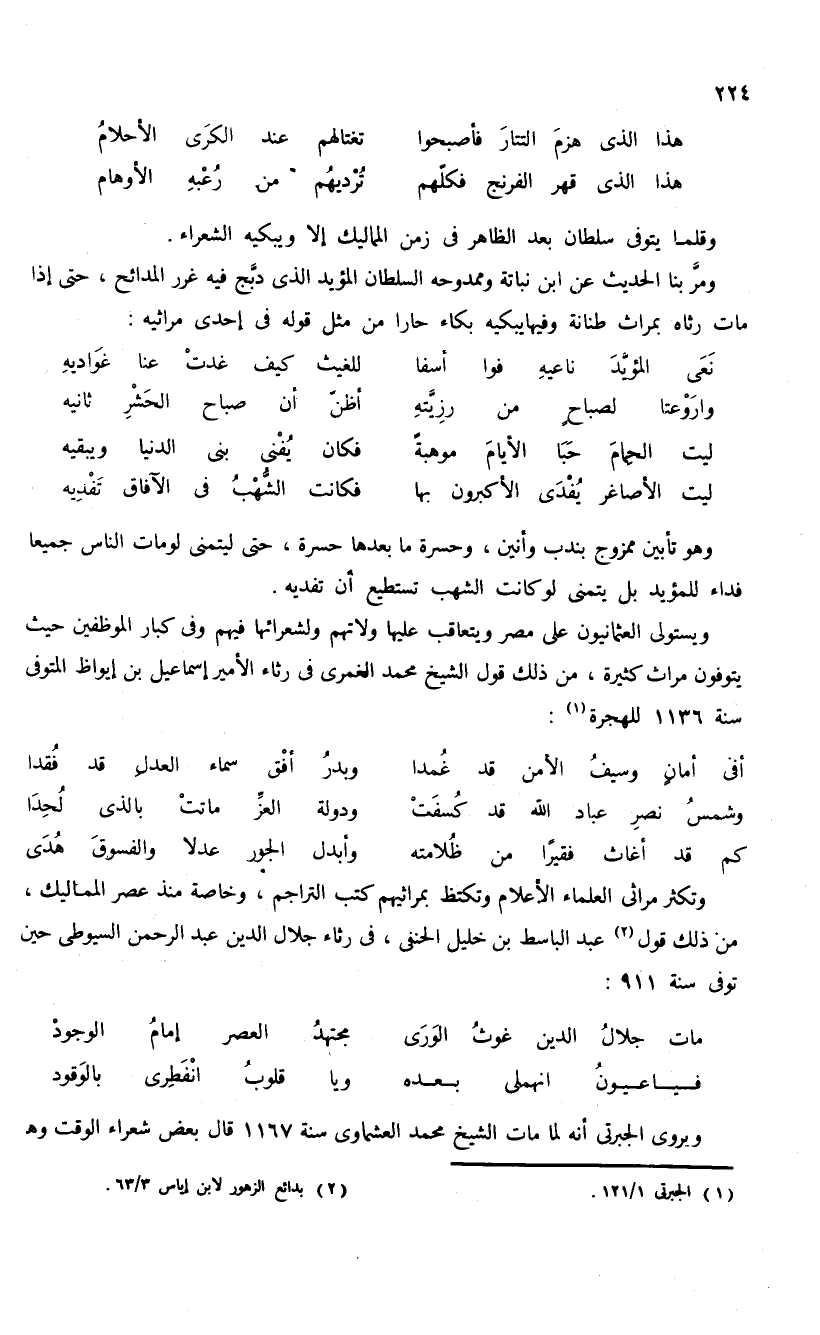 ٢٢٤
هذا الذى هزمَ التتارَ فأصبحوا تغتالهم عند الكرَى الأحلامُ
هذا الذى قهر الفرنج فكلّهم تُرْديهُم من رُعْبهِ الأوهام
وقلمـا يتوفى سلطان بعد الظاهر فى زمن المماليك إلا ويبكيه الشعراء .
ومرَّ بنا الحديث عن ابن نباتة وممدوحه السلطان المؤيد الذى دبَّج فيه غرر المدائح ، حتى إذا
مات رثاه بمراث طنانة وفيهايبكيه بكاء حارا من مثل قوله فى إحدى مراثيه :
نَعَى المؤيَّدَ ناعيهِ فوا أسفا للغيث كيف غدتْ عنا غَوَاديهِ
وارَوْعتا لصباحٍ من رزِيَّتهِ أظنّ أن صباح الحَشْرِ ثانيه
ليت الحِمامَ حَبَا الأيامَ موهبةً فكان يُفْنى بنى الدنيا ويبقيه
ليت الأصاغر يُفْدَى الأكبرون بها فكانت الشُّهْبُ فى الآفاق تَفْدِيه
وهو تأبين ممزوج بندب وأنين ، وحسرة ما بعدها حسرة ، حتى ليتمنى لومات الناس جميعا
فداء للمؤيد بل يتمنى لوكانت الشهب تستطيع أن تفديه .
ويستولى العثمانيون على مصر ويتعاقب عليها ولاتهم ولشعرائها فيهم وفى كبار الموظفين حيث
يتوفون مراث كثيرة ، من ذلك قول الشيخ محمد الغمرى فى رثاء الأمير إسماعيل بن إيواظ المتوفى
سنة ١١٣٦ للهجرة (١) :
أفى أمانٍ وسيفُ الأمن قد غُمدا وبدرُ أفْق سماء العدلِ قد فُقدا
وشمسُ نصرِ عباد الله قد كُسفَتْ ودولة العزِّ ماتتْ بالذى لُحِدَا
كم قد أغاث فقيرًا من ظُلامته وأبدل الجوْر عدلا والفسوقَ هُدَى
وتكثر مراثى العلماء الأعلام وتكتظ بمراثيهم كتب التراجم ، وخاصة منذ عصر المماليك ،
من ذلك قول (٢) عبد الباسط بن خليل الحنفى ، فى رثاء جلال الدين عبد الرحمن السيوطى حين
توفى سنة ٩١١ :
مات جلالُ الدين غوثُ الوَرَى مجتهدُ العصر إمامُ الوجودْ
فـيـا عـيـونُ انهملى بـعـده ويا قلوبُ انْفَطِرى بالوَقود
ويروى الجبرتى أنه لما مات الشيخ محمد العشماوى سنة ١١٦٧ قال بعض شعراء الوقت وهـ
(١) الجبرتى ١٢١/١ . (٢) بدائع الزهور لابن إياس ٦٣/٣ .